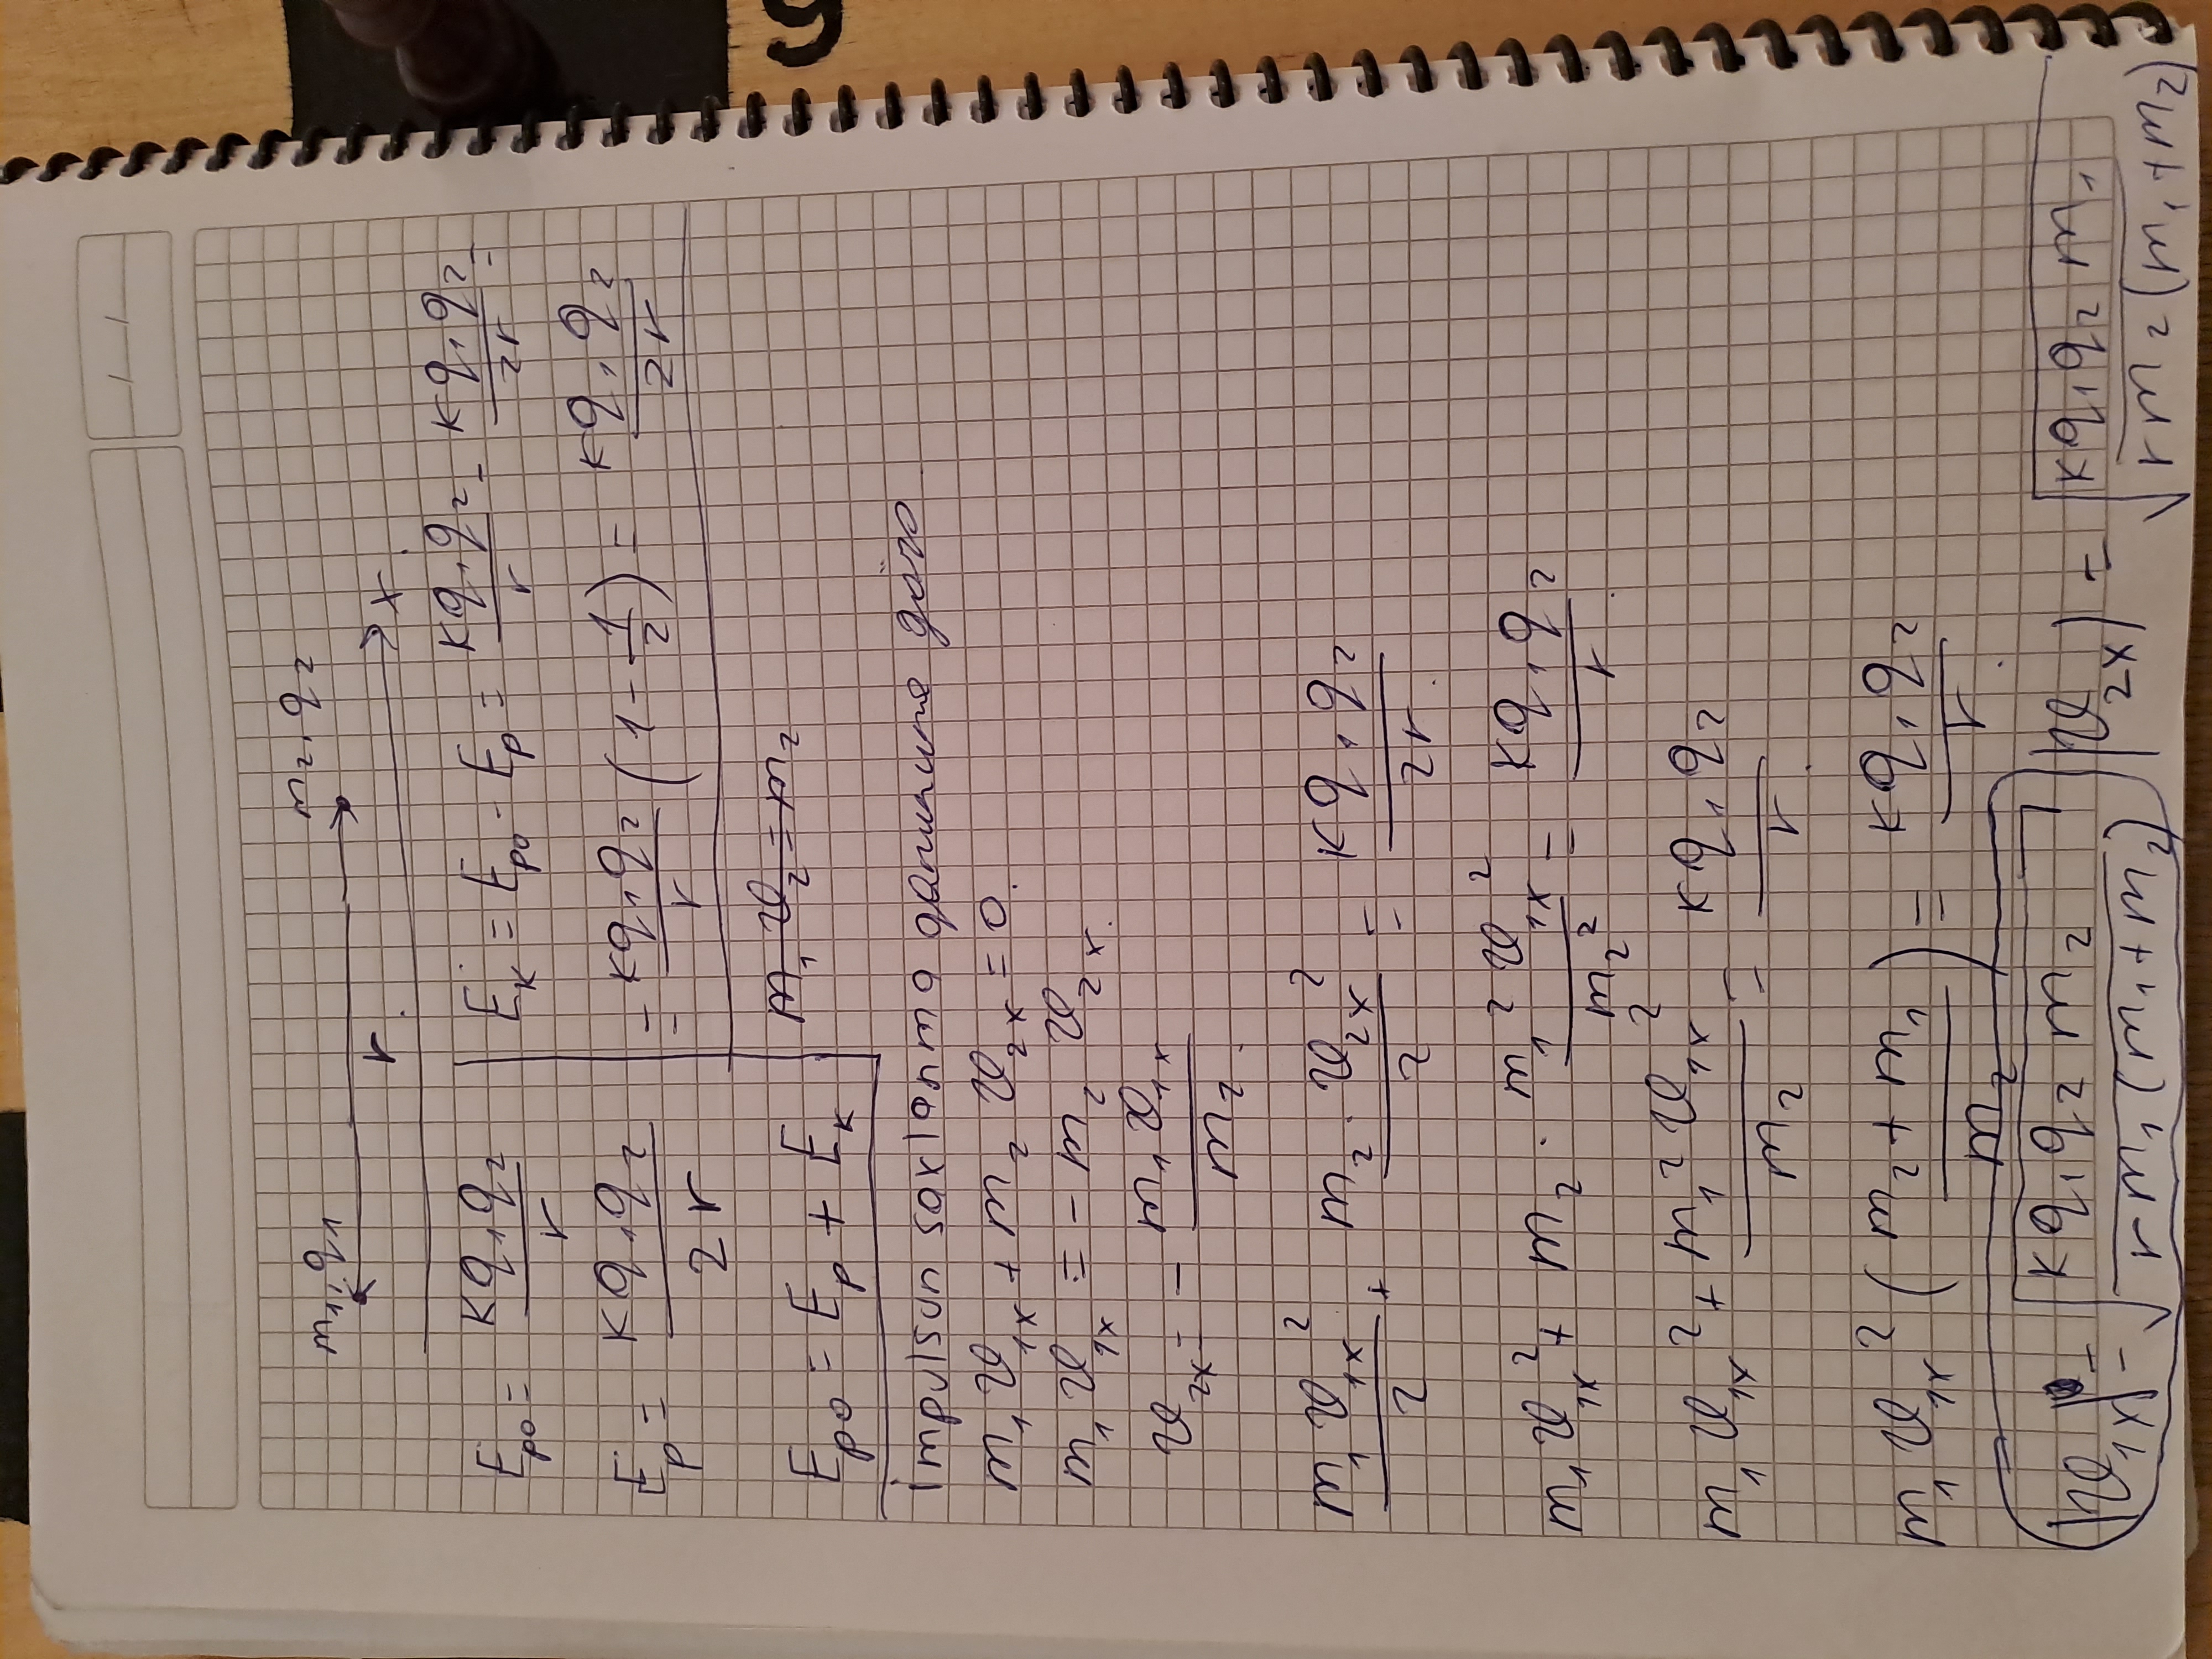 m₁, q₁ m₂, q₂
r
x
Eₚ₀ = kq₁q₂/r
Eₚ = kq₁q₂/2r
Eₚ₀ = Eₚ + Eₖ
Eₖ = Eₚ₀ - Eₚ = kq₁q₂/r - kq₁q₂/2r =
= kq₁q₂/r (1 - 1/2) = kq₁q₂/2r
m₁ϑ₂ = m₂
İmpulsun saxlanma qanununa görə
m₁ϑ₁ₓ + m₂ϑ₂ₓ = 0.
m₁ϑ₁ₓ = - m₂ϑ₂ₓ.
ϑ₂ₓ = - m₁ϑ₁ₓ/m₂
m₁ϑ₁ₓ²/2 + m₂·ϑ₂ₓ²/2 = kq₁q₂/2r
m₁ϑ₁ₓ² + m₂ · m₁²ϑ₁ₓ²/m₂² = kq₁q₂/r
m₁ϑ₁ₓ² + m₁²ϑ₁ₓ²/m₂ = kq₁q₂/r
m₁ϑ₁ₓ² ((m₂ + m₁)/m₂) = kq₁q₂/r
|ϑ₁ₓ| = √(kq₁q₂m₂/(rm₁(m₁+m₂))) |ϑ₂ₓ| = √(kq₁q₂m₁/(rm₂(m₁+m₂)))